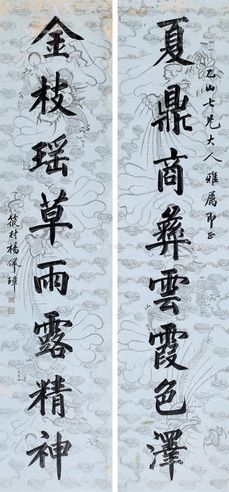 夏鼎商彝雲霞色澤
乙山七兄大人雅屬即正
金枝瑶草雨露精神
筱村楊佩璋